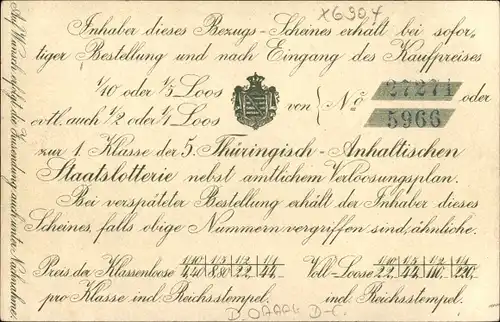 X6904
Inhaber dieses Bezugs-Scheines erhält bei sofor-
tiger Bestellung und nach Eingang des Kaufpreises
1/10 oder 1/5 Loos
evtl. auch 1/2 oder 1/1 Loos
von { No 27271 oder
5966
zur 1. Klasse der 5. Thüringisch-Anhaltischen
Staatslotterie nebst amtlichem Verloosungsplan.
Bei verspäteter Bestellung erhält der Inhaber dieses
Scheines, falls obige Nummern vergriffen sind, ähnliche.
Preis der Klassenloose 1/10 1/5 1/2 1/1 Voll-Loose 1/10 1/5 1/2 1/1
4,40 8,80 22,- 44,- 22,- 44,- 110,- 220,-
pro Klasse incl. Reichsstempel. incl. Reichsstempel.
Auf Wunsch erfolgt die Zusendung auch unter Nachnahme.